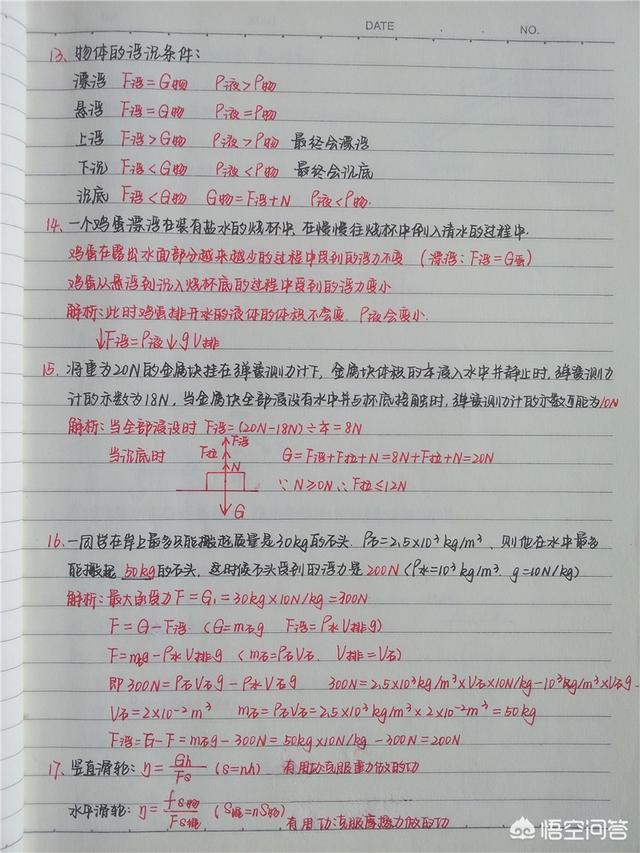 DATE NO.
13、物体的浮沉条件：
漂浮 F浮=G物 ρ液>ρ物
悬浮 F浮=G物 ρ液=ρ物
上浮 F浮>G物 ρ液>ρ物 最终会漂浮
下沉 F浮<G物 ρ液<ρ物 最终会沉底
沉底 F浮<G物 G物=F浮+N ρ液<ρ物
14、一个鸡蛋漂浮在装有盐水的烧杯中,在慢慢往烧杯中倒入清水的过程中.
鸡蛋在露出水面部分越来越少的过程中受到的浮力不变 (漂浮:F浮=G蛋)
鸡蛋从悬浮到沉入烧杯底的过程中受到的浮力变小
解析:此时鸡蛋排开水的液体的体积不会变.ρ液会变小.
↓F浮=ρ液↓gV排
15、将重为20N的金属块挂在弹簧测力计下,金属块体积的 浸入水中并静止时,弹簧测力
计的示数为18N,当金属块全部浸没有水中并与杯底接触时,弹簧测力计的示数可能为10N
解析:当全部浸没时 F浮=(20N-18N)÷ =8N
F浮
当沉底时 F拉 N G=F浮+F拉+N=8N+F拉+N=20N
∵N≥0N∴F拉≤12N
G
16、一同学在岸上最多只能搬起质量是30kg的石头.ρ石=2.5×10³kg/m³、则他在水中最多
能搬起 50kg的石头、这时候石头受到的浮力是200N(ρ水=10³kg/m³、g=10N/kg)
解析:最大承受力F=G₁=30kg×10N/kg=300N
F=G-F浮 (G=m石g F浮=ρ水V排g)
F=m石g-ρ水V排g (m石=ρ石V石、V排=V石)
即300N=ρ石V石g-ρ水V石g 300N=2.5×10³kg/m³×V石×10N/kg-10³kg/m³×V石g
V石=2×10⁻²m³ m石=ρ石V石=2.5×10³kg/m³×2×10⁻²m³=50kg
F浮=G-F=m石g-300N=50kg×10N/kg-300N=200N
17、竖直滑轮:η=Gh/Fs (s=nh) 有用功克服重力做的功
水平滑轮:η=fs物/Fs绳 (S绳=nS物) 有用功克服摩擦力做的功
悟空问答